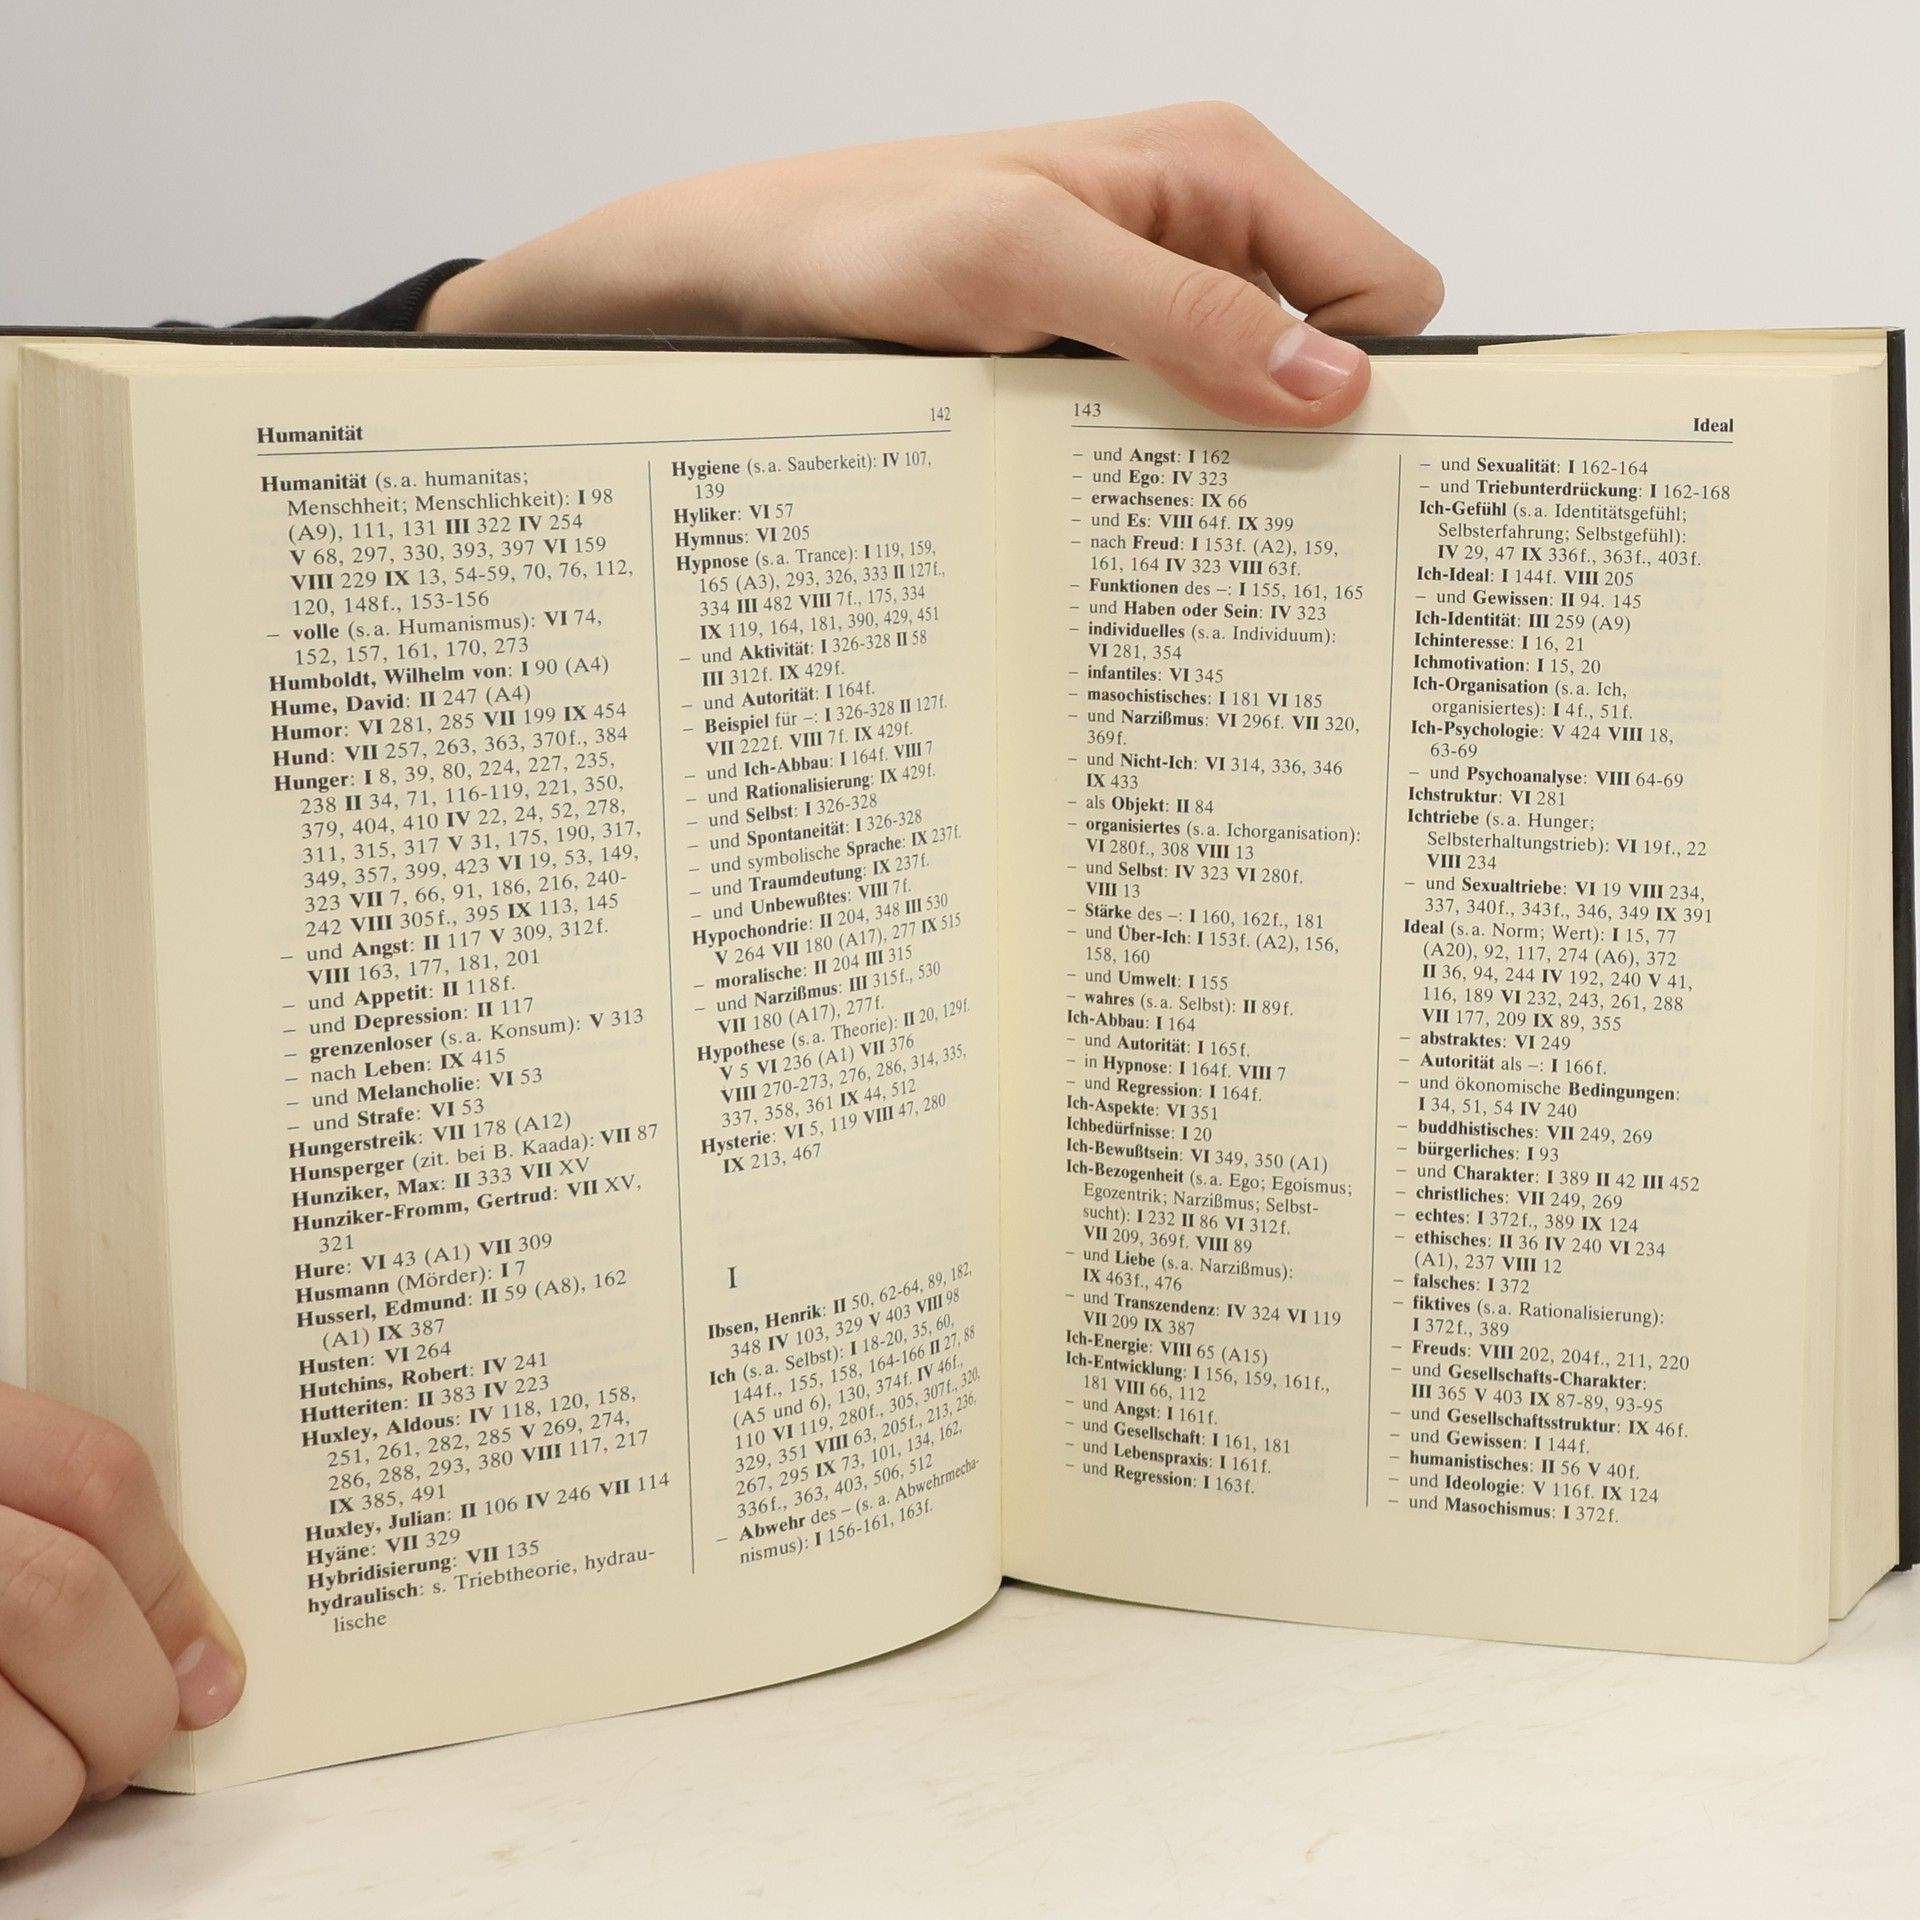 Humanität
142
Humanität (s. a. humanitas;
Menschheit; Menschlichkeit): I 98
(A9), 111, 131 III 322 IV 254
V 68, 297, 330, 393, 397 VI 159
VIII 229 IX 13, 54-59, 70, 76, 112,
120, 148f., 153-156
– volle (s. a. Humanismus): VI 74,
152, 157, 161, 170, 273
Humboldt, Wilhelm von: I 90 (A4)
Hume, David: II 247 (A4)
Humor: VI 281, 285 VII 199 IX 454
Hund: VII 257, 263, 363, 370f., 384
Hunger: I 8, 39, 80, 224, 227, 235,
238 II 34, 71, 116-119, 221, 350,
379, 404, 410 IV 22, 24, 52, 278,
311, 315, 317 V 31, 175, 190, 317,
349, 357, 399, 423 VI 19, 53, 149,
323 VII 7, 66, 91, 186, 216, 240-
242 VIII 305f., 395 IX 113, 145
– und Angst: II 117 V 309, 312f.
VIII 163, 177, 181, 201
– und Appetit: II 118f.
– und Depression: II 117
– grenzenloser (s. a. Konsum): V 313
– nach Leben: IX 415
– und Melancholie: VI 53
– und Strafe: VI 53
Hungerstreik: VII 178 (A12)
Hunsperger (zit. bei B. Kaada): VII 87
Hunziker, Max: II 333 VII XV
Hunziker-Fromm, Gertrud: VII XV,
321
Hure: VI 43 (A1) VII 309
Husmann (Mörder): I 7
Husserl, Edmund: II 59 (A8), 162
(A1) IX 387
Husten: VI 264
Hutchins, Robert: IV 241
Hutteriten: II 383 IV 223
Huxley, Aldous: IV 118, 120, 158,
251, 261, 282, 285 V 269, 274,
286, 288, 293, 380 VIII 117, 217
IX 385, 491
Huxley, Julian: II 106 IV 246 VII 114
Hyäne: VII 329
Hybridisierung: VII 135
hydraulisch: s. Triebtheorie, hydrau-
lische
Hygiene (s. a. Sauberkeit): IV 107,
139
Hyliker: VI 57
Hymnus: VI 205
Hypnose (s. a. Trance): I 119, 159,
165 (A3), 293, 326, 333 II 127f.,
334 III 482 VIII 7f., 175, 334
IX 119, 164, 181, 390, 429, 451
– und Aktivität: I 326-328 II 58
III 312f. IX 429f.
– und Autorität: I 164f.
– Beispiel für –: I 326-328 II 127f.
VII 222f. VIII 7f. IX 429f.
– und Ich-Abbau: I 164f. VIII 7
– und Rationalisierung: IX 429f.
– und Selbst: I 326-328
– und Spontaneität: I 326-328
– und symbolische Sprache: IX 237f.
– und Traumdeutung: IX 237f.
– und Unbewußtes: VIII 7f.
Hypochondrie: II 204, 348 III 530
V 264 VII 180 (A17), 277 IX 515
– moralische: II 204 III 315
– und Narzißmus: III 315f., 530
VII 180 (A17), 277f.
Hypothese (s. a. Theorie): II 20, 129f.
V 5 VI 236 (A1) VII 376
VIII 270-273, 276, 286, 314, 335,
337, 358, 361 IX 44, 512
Hysterie: VI 5, 119 VIII 47, 280
IX 213, 467
I
Ibsen, Henrik: II 50, 62-64, 89, 182,
348 IV 103, 329 V 403 VIII 98
Ich (s. a. Selbst): I 18-20, 35, 60,
144f., 155, 158, 164-166 II 27, 88
(A5 und 6), 130, 374f. IV 46f.,
110 VI 119, 280f., 305, 307f., 320,
329, 351 VIII 63, 205f., 213, 236,
267, 295 IX 73, 101, 134, 162,
336f., 363, 403, 506, 512
– Abwehr des – (s. a. Abwehrmecha-
nismus): I 156-161, 163f.
143
Ideal
– und Angst: I 162
– und Ego: IV 323
– erwachsenes: IX 66
– und Es: VIII 64f. IX 399
– nach Freud: I 153f. (A2), 159,
161, 164 IV 323 VIII 63f.
– Funktionen des –: I 155, 161, 165
– und Haben oder Sein: IV 323
– individuelles (s. a. Individuum):
VI 281, 354
– infantiles: VI 345
– masochistisches: I 181 VI 185
– und Narzißmus: VI 296f. VII 320,
369f.
– und Nicht-Ich: VI 314, 336, 346
IX 433
– als Objekt: II 84
– organisiertes (s. a. Ichorganisation):
VI 280f., 308 VIII 13
– und Selbst: IV 323 VI 280f.
VIII 13
– Stärke des –: I 160, 162f., 181
– und Über-Ich: I 153f. (A2), 156,
158, 160
– und Umwelt: I 155
– wahres (s. a. Selbst): II 89f.
Ich-Abbau: I 164
– und Autorität: I 165f.
– in Hypnose: I 164f. VIII 7
– und Regression: I 164f.
Ich-Aspekte: VI 351
Ichbedürfnisse: I 20
Ich-Bewußtsein: VI 349, 350 (A1)
Ich-Bezogenheit (s. a. Ego; Egoismus;
Egozentrik; Narzißmus; Selbst-
sucht): I 232 II 86 VI 312f.
VII 209, 369f. VIII 89
– und Liebe (s. a. Narzißmus):
IX 463f., 476
– und Transzendenz: IV 324 VI 119
VII 209 IX 387
Ich-Energie: VIII 65 (A15)
Ich-Entwicklung: I 156, 159, 161f.,
181 VIII 66, 112
– und Angst: I 161f.
– und Gesellschaft: I 161, 181
– und Lebenspraxis: I 161f.
– und Regression: I 163f.
– und Sexualität: I 162-164
– und Triebunterdrückung: I 162-168
Ich-Gefühl (s. a. Identitätsgefühl;
Selbsterfahrung; Selbstgefühl):
IV 29, 47 IX 336f., 363f., 403f.
Ich-Ideal: I 144f. VIII 205
– und Gewissen: II 94. 145
Ich-Identität: III 259 (A9)
Ichinteresse: I 16, 21
Ichmotivation: I 15, 20
Ich-Organisation (s. a. Ich,
organisiertes): I 4f., 51f.
Ich-Psychologie: V 424 VIII 18,
63-69
– und Psychoanalyse: VIII 64-69
Ichstruktur: VI 281
Ichtriebe (s. a. Hunger;
Selbsterhaltungstrieb): VI 19f., 22
VIII 234
– und Sexualtriebe: VI 19 VIII 234,
337, 340f., 343f., 346, 349 IX 391
Ideal (s. a. Norm; Wert): I 15, 77
(A20), 92, 117, 274 (A6), 372
II 36, 94, 244 IV 192, 240 V 41,
116, 189 VI 232, 243, 261, 288
VII 177, 209 IX 89, 355
– abstraktes: VI 249
– Autorität als –: I 166f.
– und ökonomische Bedingungen:
I 34, 51, 54 IV 240
– buddhistisches: VII 249, 269
– bürgerliches: I 93
– und Charakter: I 389 II 42 III 452
– christliches: VII 249, 269
– echtes: I 372f., 389 IX 124
– ethisches: II 36 IV 240 VI 234
(A1), 237 VIII 12
– falsches: I 372
– fiktives (s. a. Rationalisierung):
I 372f., 389
– Freuds: VIII 202, 204f., 211, 220
– und Gesellschafts-Charakter:
III 365 V 403 IX 87-89, 93-95
– und Gesellschaftsstruktur: IX 46f.
– und Gewissen: I 144f.
– humanistisches: II 56 V 40f.
– und Ideologie: V 116f. IX 124
– und Masochismus: I 372f.